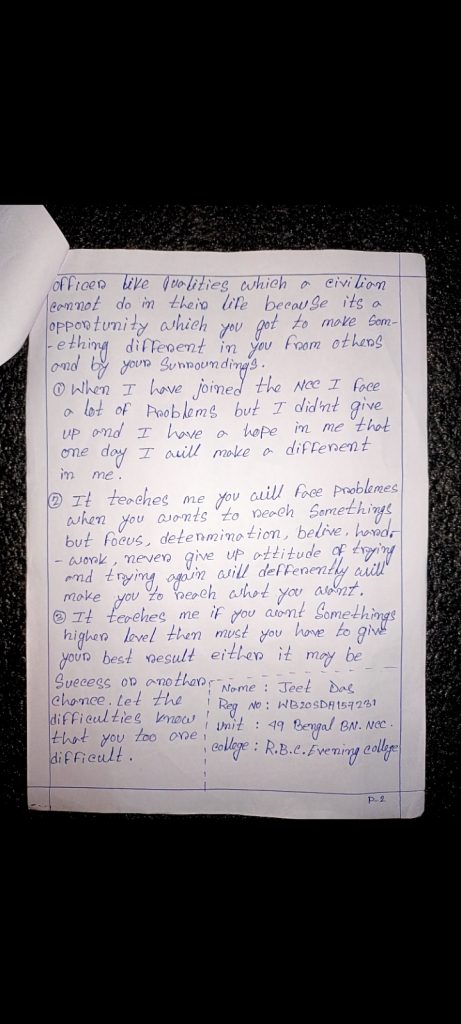 officer like Qualities which a civilian
cannot do in their life because its a
opportunity which you got to make Som-
-ething different in you from others
and by your Surroundings.
① When I have joined the NCC I face
a lot of Problems but I didn't give
up and I have a hope in me that
one day I will make a different
in me.
② It teaches me you will face problemes
when you wants to reach Somethings
but focus, determination, belive, hard-
-work, never give up attitude of trying
and trying again will defferently will
make you to reach what you want.
③ It teaches me if you want Somethings
higher level then must you have to give
your best result either it may be
Success or another
chance. Let the
difficulties know
that you too are
difficult.
Name : Jeet Das
Reg No : WB20SDA157231
Unit : 49 Bengal BN. NCC.
college : R.B.C. Evening college
P-2